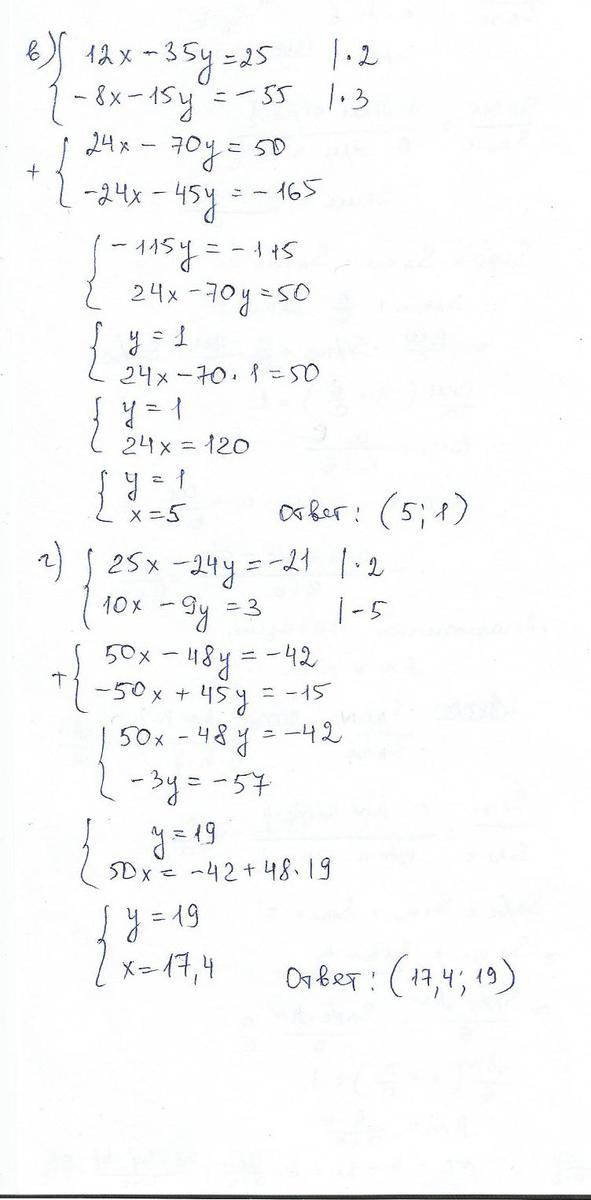 в) { 12x - 35y = 25 | · 2
-8x - 15y = -55 | · 3
+ { 24x - 70y = 50
-24x - 45y = -165
{ -115y = -115
24x - 70y = 50
{ y = 1
24x - 70 · 1 = 50
{ y = 1
24x = 120
{ y = 1
x = 5 Ответ: (5; 1)
г) { 25x - 24y = -21 | · 2
10x - 9y = 3 | -5
+ { 50x - 48y = -42
-50x + 45y = -15
{ 50x - 48y = -42
-3y = -57
{ y = 19
50x = -42 + 48 · 19
{ y = 19
x = 17,4 Ответ: (17,4; 19)